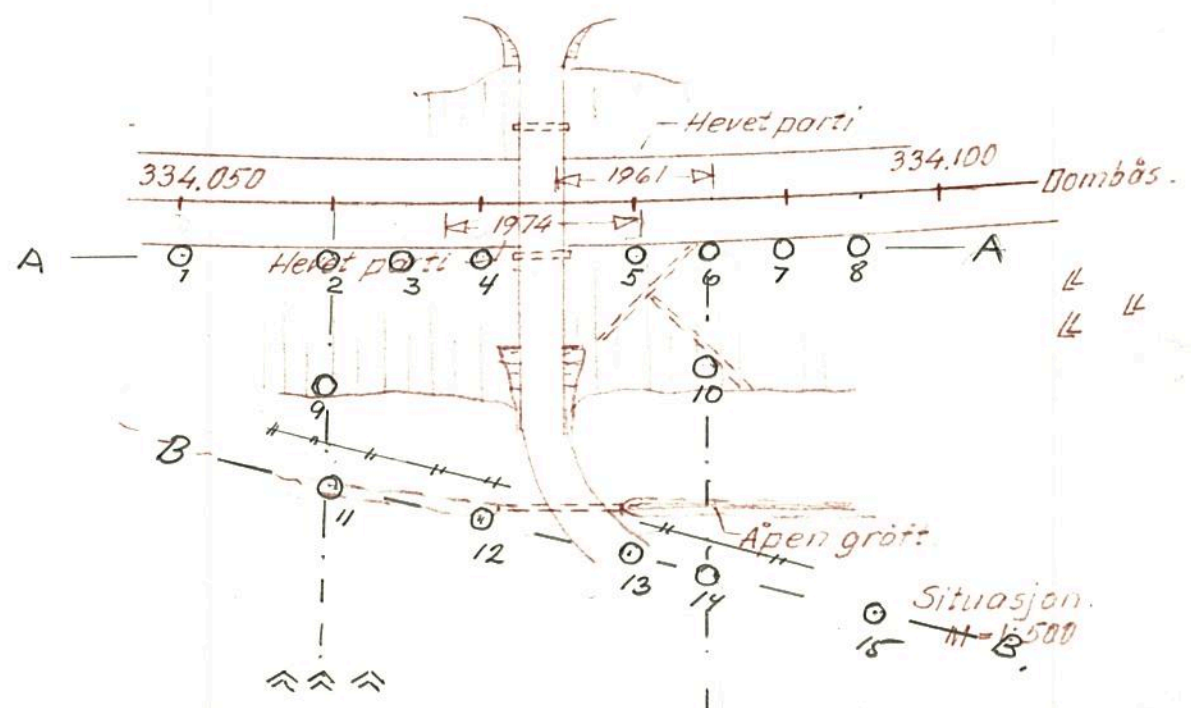 Hevet parti
334.050
1961
334.100
Dombås.
1974
A
Hevet parti
A
1
2
3
4
5
6
7
8
9
10
B
11
12
13
14
Åpen grøft.
15
Situasjon.
M = 1:500
B.